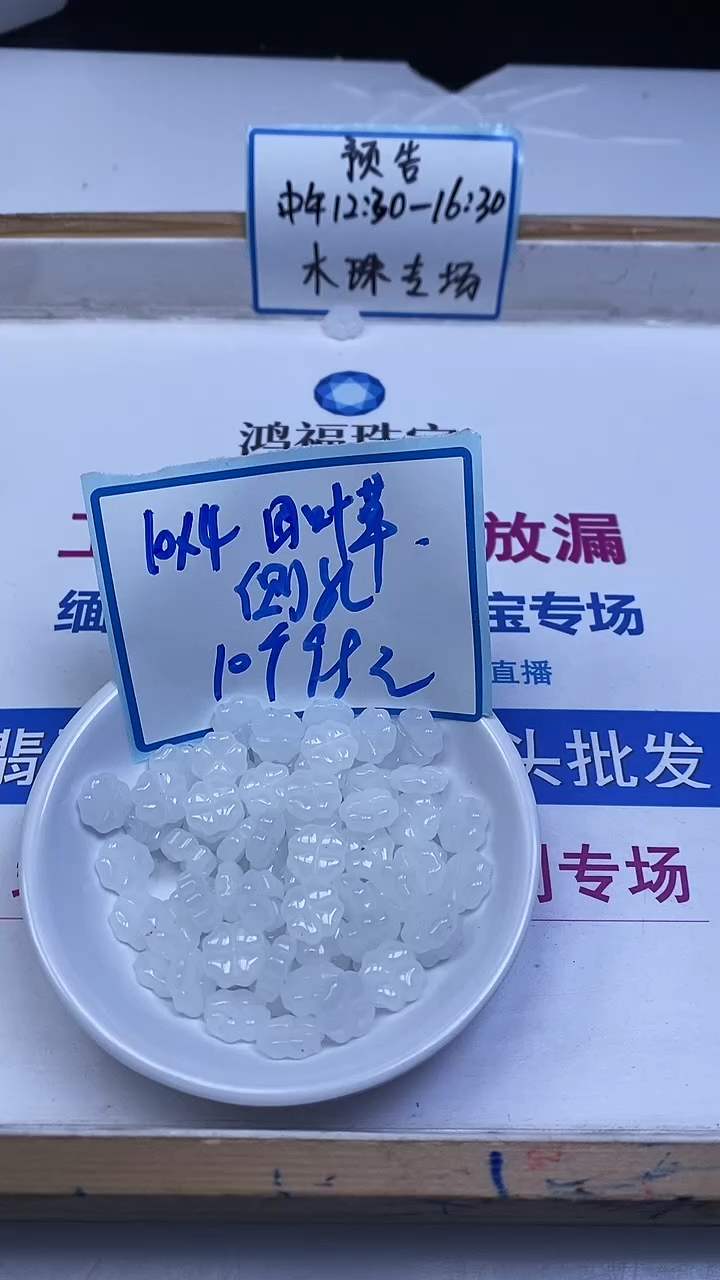 预告
中午12:30-16:30
水珠专场
鸿福珠宝
放漏
缅
宝专场
直播
10x4 四叶草.
侧孔
翡
头批发
专场